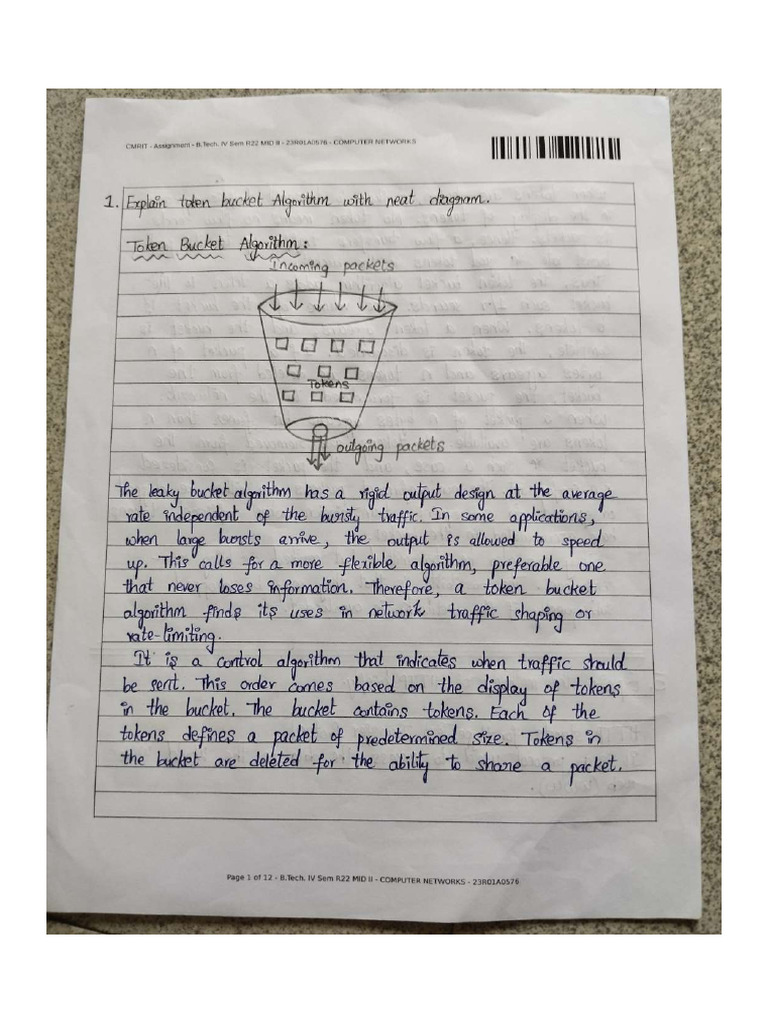 CMRIT - Assignment - B.Tech. IV Sem R22 MID II - 23R01A0576 - COMPUTER NETWORKS
1. Explain token bucket Algorithm with neat diagram.
Token Bucket Algorithm:
Incoming packets
Tokens
outgoing packets
The leaky bucket algorithm has a rigid output design at the average
rate independent of the bursty traffic. In some applications,
when large bursts arrive, the output is allowed to speed
up. This calls for a more flexible algorithm, preferable one
that never loses information. Therefore, a token bucket
algorithm finds its uses in network traffic shaping or
rate-limiting.
It is a control algorithm that indicates when traffic should
be sent. This order comes based on the display of tokens
in the bucket. The bucket contains tokens. Each of the
tokens defines a packet of predetermined size. Tokens in
the bucket are deleted for the ability to share a packet.
Page 1 of 12 - B.Tech. IV Sem R22 MID II - COMPUTER NETWORKS - 23R01A0576